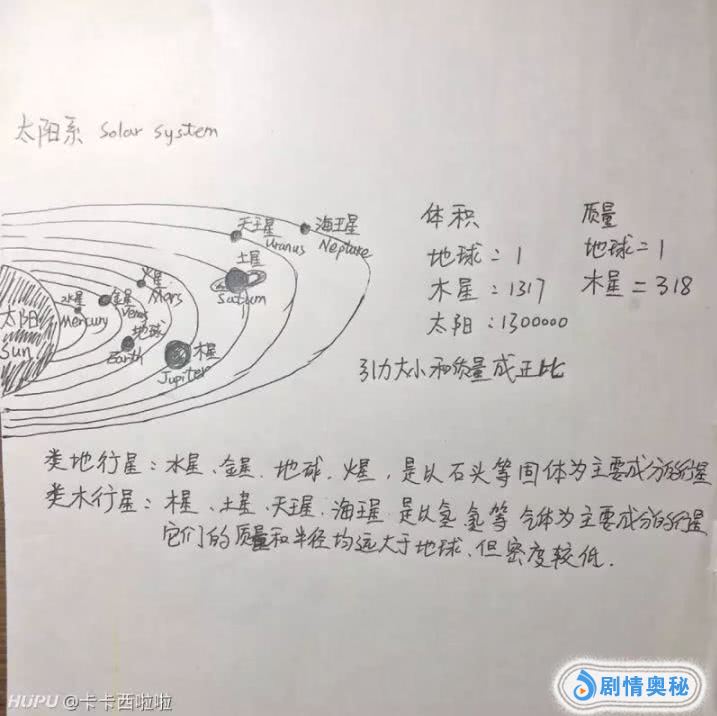 太阳系 Solar system
天王星
Uranus
海王星
Neptune
土星
Saturn
火星
Mars
水星
Mercury
金星
Venus
地球
Earth
木星
Jupiter
太阳
Sun
体积
地球：1
木星：1317
太阳：1300000
质量
地球=1
木星=318
引力大小和质量成正比
类地行星：水星、金星、地球、火星，是以石头等固体为主要成分的行星
类木行星：木星、土星、天王星、海王星 是以氢、氦等气体为主要成分的行星
它们的质量和半径均远大于地球，但密度较低.
HUPU @卡卡西啦啦
剧情奥秘